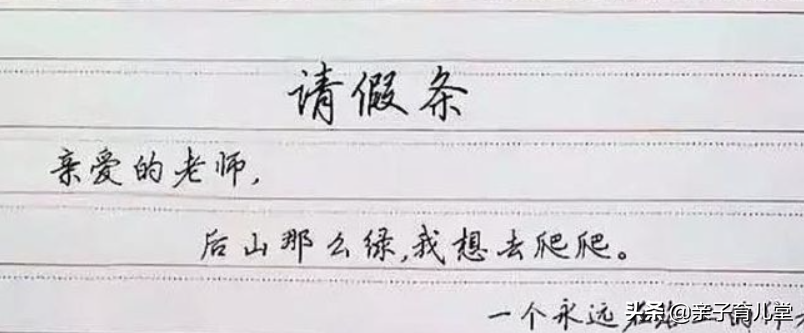 请假条
亲爱的老师,
后山那么绿,我想去爬爬。
一个永远
头条@亲子育儿堂